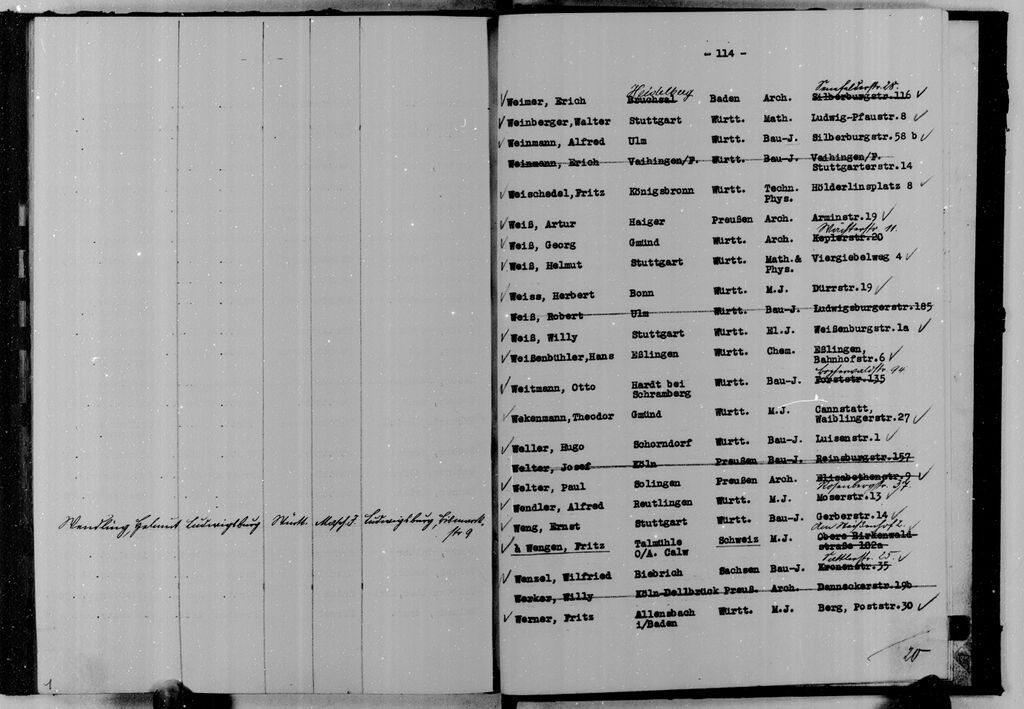 Wendling Helmut Ludwigsburg Württ. Masch J. Ludwigsburg, Bismarck-
str. 9
1
- 114 -
Heidelberg Senefelderstr. 28.
√ Weimer, Erich Bruchsal Baden Arch. Silberburgstr.116 √
√ Weinberger,Walter Stuttgart Württ. Math. Ludwig-Pfaustr.8 √
√ Weinmann, Alfred Ulm Württ. Bau-J. Silberburgstr.58 b √
Weinmann, Erich Vaihingen/F. Württ. Bau-J. Vaihingen/F.
Stuttgarterstr.14
√ Weischedel,Fritz Königsbronn Württ. Techn. Hölderlinsplatz 8 √
Phys.
√ Weiß, Artur Haiger Preußen Arch. Arminstr.19 √
Wächterstr. 11.
√ Weiß, Georg Gmünd Württ. Arch. Keplerstr.20
√ Weiß, Helmut Stuttgart Württ. Math.& Viergiebelweg 4 √
Phys.
√ Weiss, Herbert Bonn Württ. M.J. Dürrstr.19 √
Weiß, Robert Ulm Württ. Bau-J. Ludwigsburgerstr.185
√ Weiß, Willy Stuttgart Württ. El.J. Weißenburgstr.1a √
√ Weißenbühler,Hans Eßlingen Württ. Chem. Eßlingen,
Bahnhofstr.6 √
94
√ Weitmann, Otto Hardt bei Württ. Bau-J. Forststr.135
Schramberg
√ Wekenmann,Theodor Gmünd Württ. M.J. Cannstatt,
Waiblingerstr.27 √
√ Weller, Hugo Schorndorf Württ. Bau-J. Luisenstr.1 √
Welter, Josef Köln Preußen Bau-J. Reinsburgstr.157
√ Welter, Paul Solingen Preußen Arch. Elisabethenstr.9 √
Rosenbergstr. 37.
√ Wendler, Alfred Reutlingen Württ. M.J. Moserstr.13 √
√ Weng, Ernst Stuttgart Württ. Bau-J. Gerberstr.14 √
Am Weißenhof 2.
√ à Wengen, Fritz Talmühle Schweiz M.J. Obere Birkenwald-
O/A. Calw straße 102a
25. √
√ Wenzel, Wilfried Biebrich Sachsen Bau-J. Kronenstr.35
Werker, Willy Köln-Dellbrück Preuß. Arch. Danneckerstr.19b
√ Werner, Fritz Allensbach Württ. M.J. Berg, Poststr.30 √
i/Baden
20